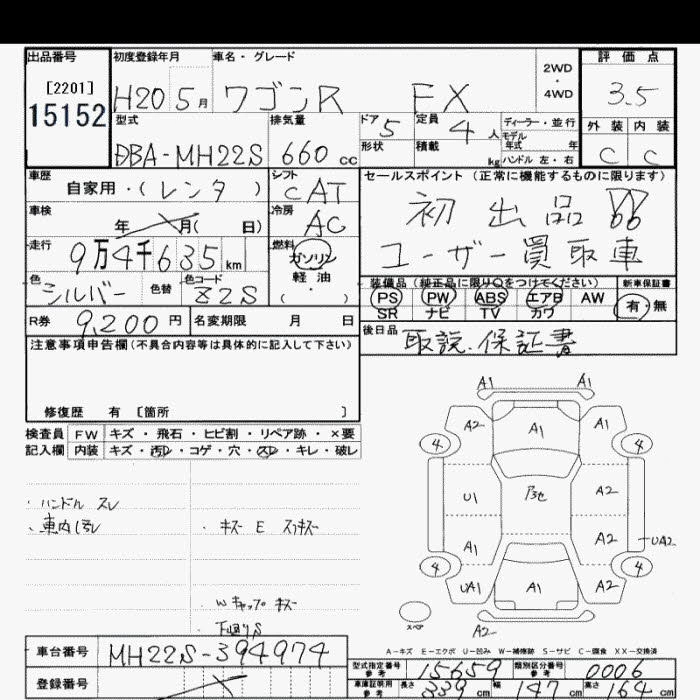 出品番号 初度登録年月 車名・グレード 評価点
[2201] 2WD・4WD
15152 H20 5月 ワゴンR FX 3.5
型式 排気量 ドア 定員 ディーラー・並行 外装 内装
DBA-MH22S 660cc 5 4人 モデル年式 年 C C
形状 積載 kg ハンドル 左・右
車歴 シフト セールスポイント(正常に機能するものに限ります)
自家用・(レンタ) CAT
車検 冷房 初出品
年 月( 日) AC
走行 燃料 ユーザー買取車
9万4千635km ガソリン
軽油
( ・ )
色 色替 色コード 装備品(純正品に限り○をつけてください) 新車保証書
シルバー Z2S PS PW ABS エアB AW 有・無
SR ナビ TV カワ
R券 9,200円 名変期限 月 日 後日品 取説、保証書
注意事項申告欄(不具合内容等は具体的に記入して下さい)
修復歴 有 [箇所 ]
検査員 FW キズ・飛石・ヒビ割・リペア跡・×要
記入欄 内装 キズ・汚レ・コゲ・穴・スレ・キレ・破レ
・ハンドル スレ
・車内汚レ ・キズ E スリキズ
・Wキャップ キズ
・下廻りS
A1 A1
A2 A1 A1
4 4
U1 A2
A1 A2 UA2
4 4
UA1 A1 A2
スペア A2
A-キズ E-エクボ U-凹み W-補修跡 S-サビ C-腐食 XX-交換済
車台番号 MH22S-394974
型式指定番号 参考 15659 類別区分番号 参考 0006
登録番号
車庫証明用 参考 長さ 339cm 幅 147cm 高さ 164cm